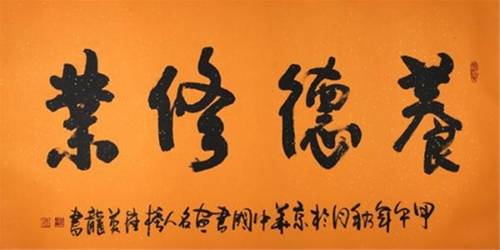 養德修業
甲午年秋月於京華中國書畫名人樓黃龍書